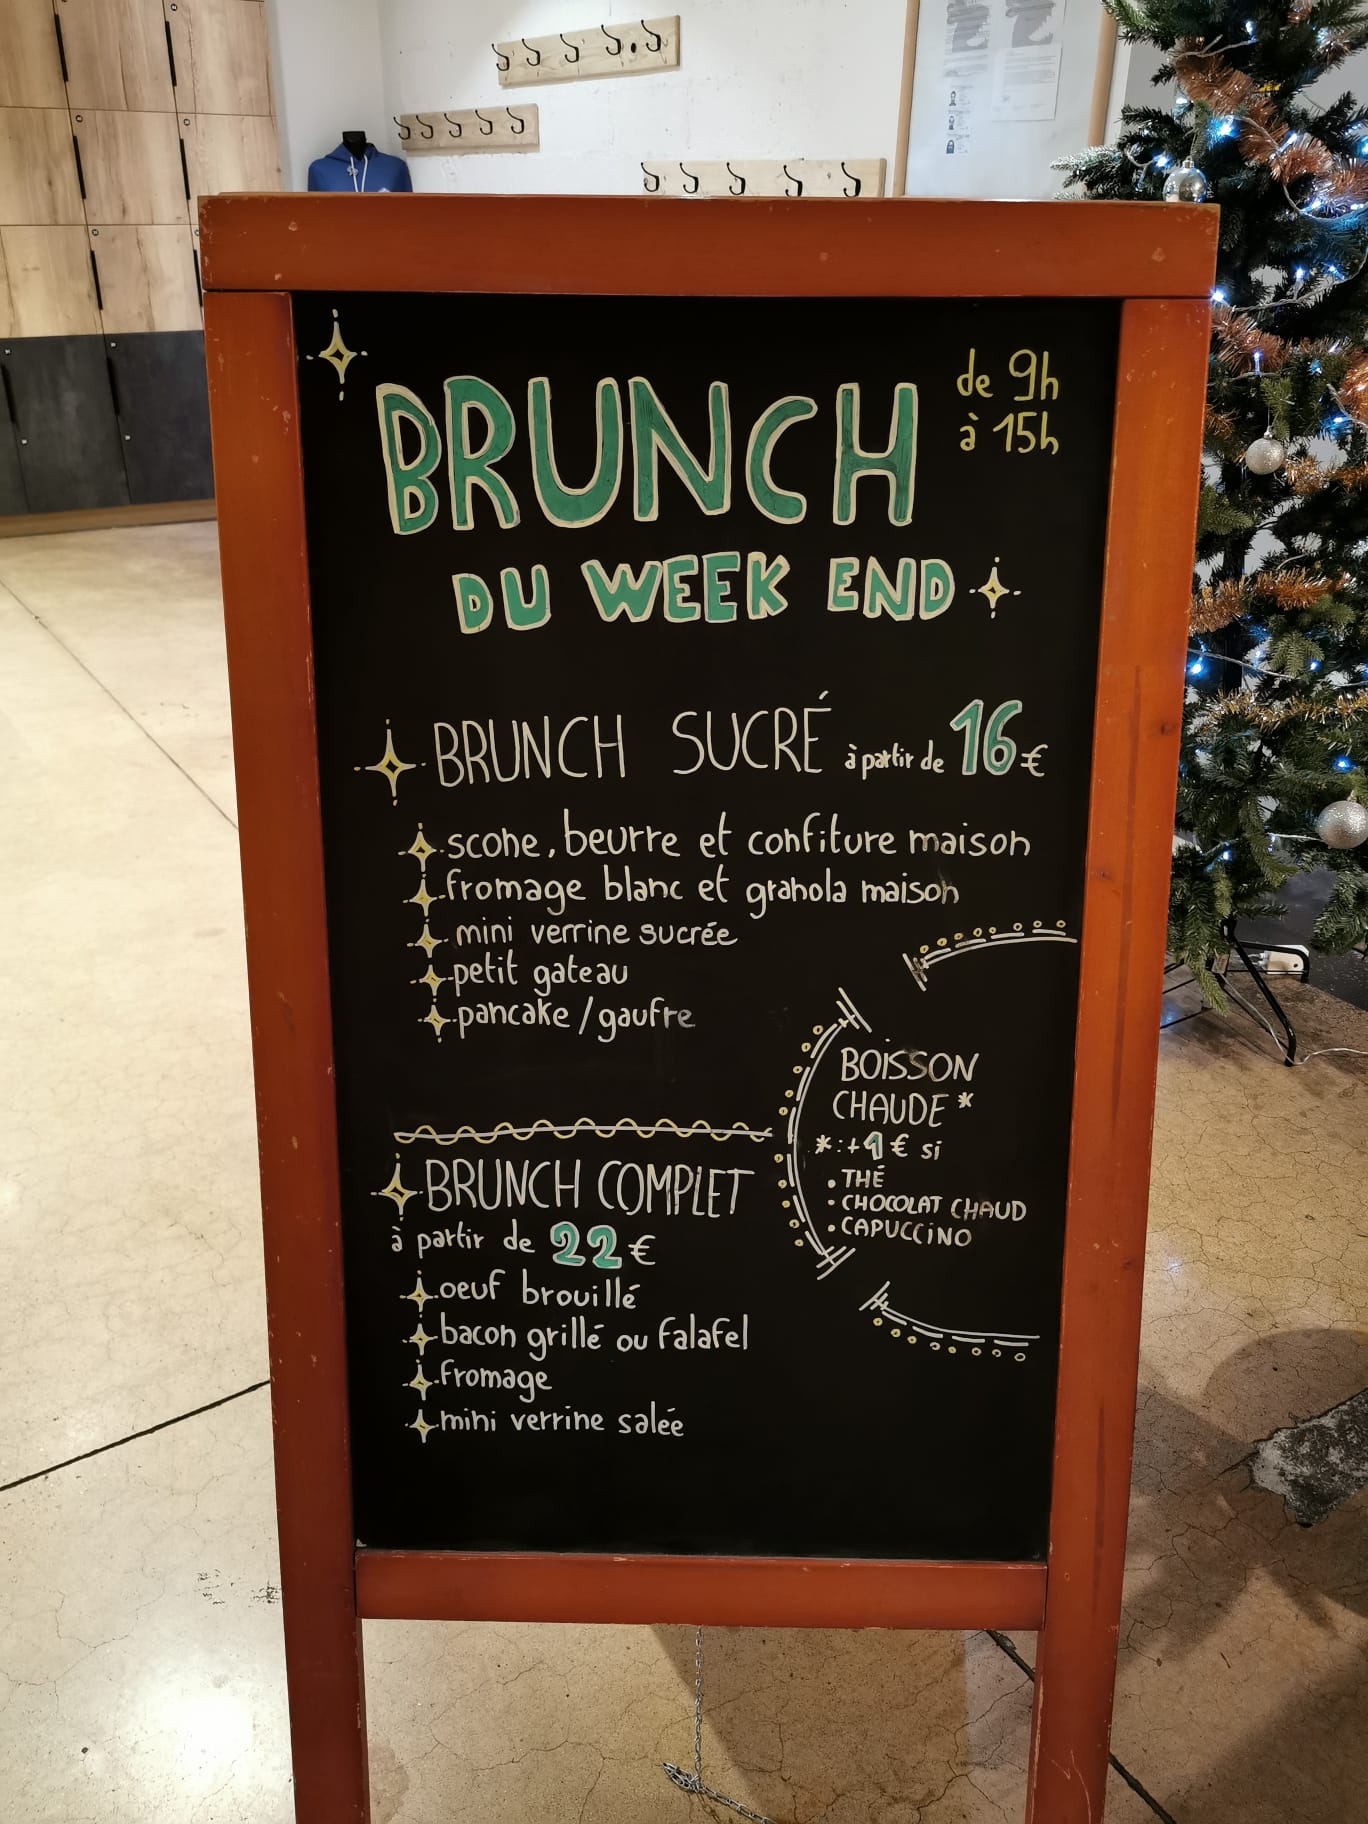 BRUNCH
de 9h
à 15h
DU WEEK END
BRUNCH SUCRÉ à partir de 16€
scone, beurre et confiture maison
fromage blanc et granola maison
mini verrine sucrée
petit gateau
pancake / gaufre
BOISSON
CHAUDE *
*: +1 € si
• THÉ
• CHOCOLAT CHAUD
• CAPUCCINO
BRUNCH COMPLET
à partir de 22€
oeuf brouillé
bacon grillé ou falafel
fromage
mini verrine salée